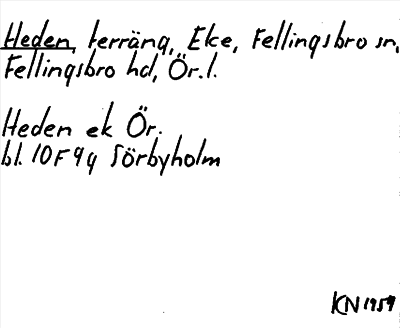 Heden, terräng, Eke, Fellingsbro sn,
Fellingsbro hd, Ör. l.
Heden ek Ör.
bl. 10F 9g Sörbyholm
KN 1959